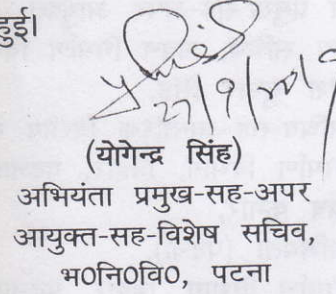 हुई।
27/9/
(योगेन्द्र सिंह)
अभियंता प्रमुख-सह-अपर
आयुक्त-सह-विशेष सचिव,
भ0नि0वि0, पटना